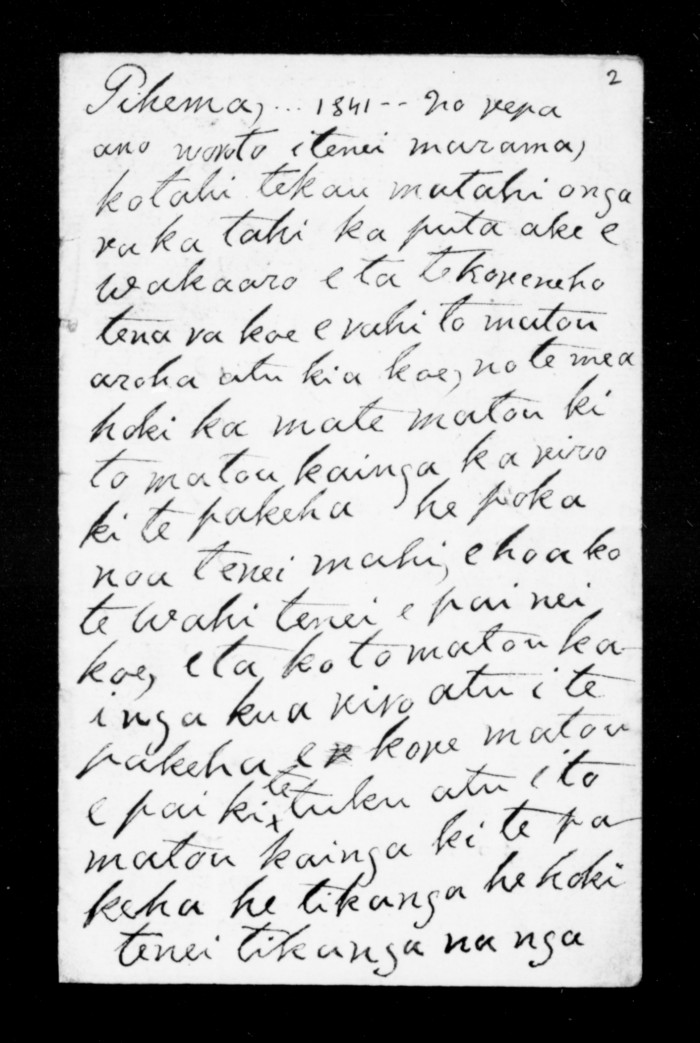 2
Tihema, ... 1841 -- No repa
ano woroto i tenei marama,
kotahi tekau matahi onga
ra ka tahi ka puta ake e
wakaaro e ta te koreneho
tena ra koe e rahi to matou
aroha atu kia koe, no te mea
hoki ka mate matou ki
to matou kainga ka riro
ki te pakeha he poka
noa tenei mahi, e hoa ko
te wahi tenei e pai nei
koe, e ta ko to matou ka-
inga kua riro atu i te
pakeha e kore matou
e pai ki te tuku atu i to
matou kainga ki te pa-
keha he tikanga he hoki
tenei tikanga na nga